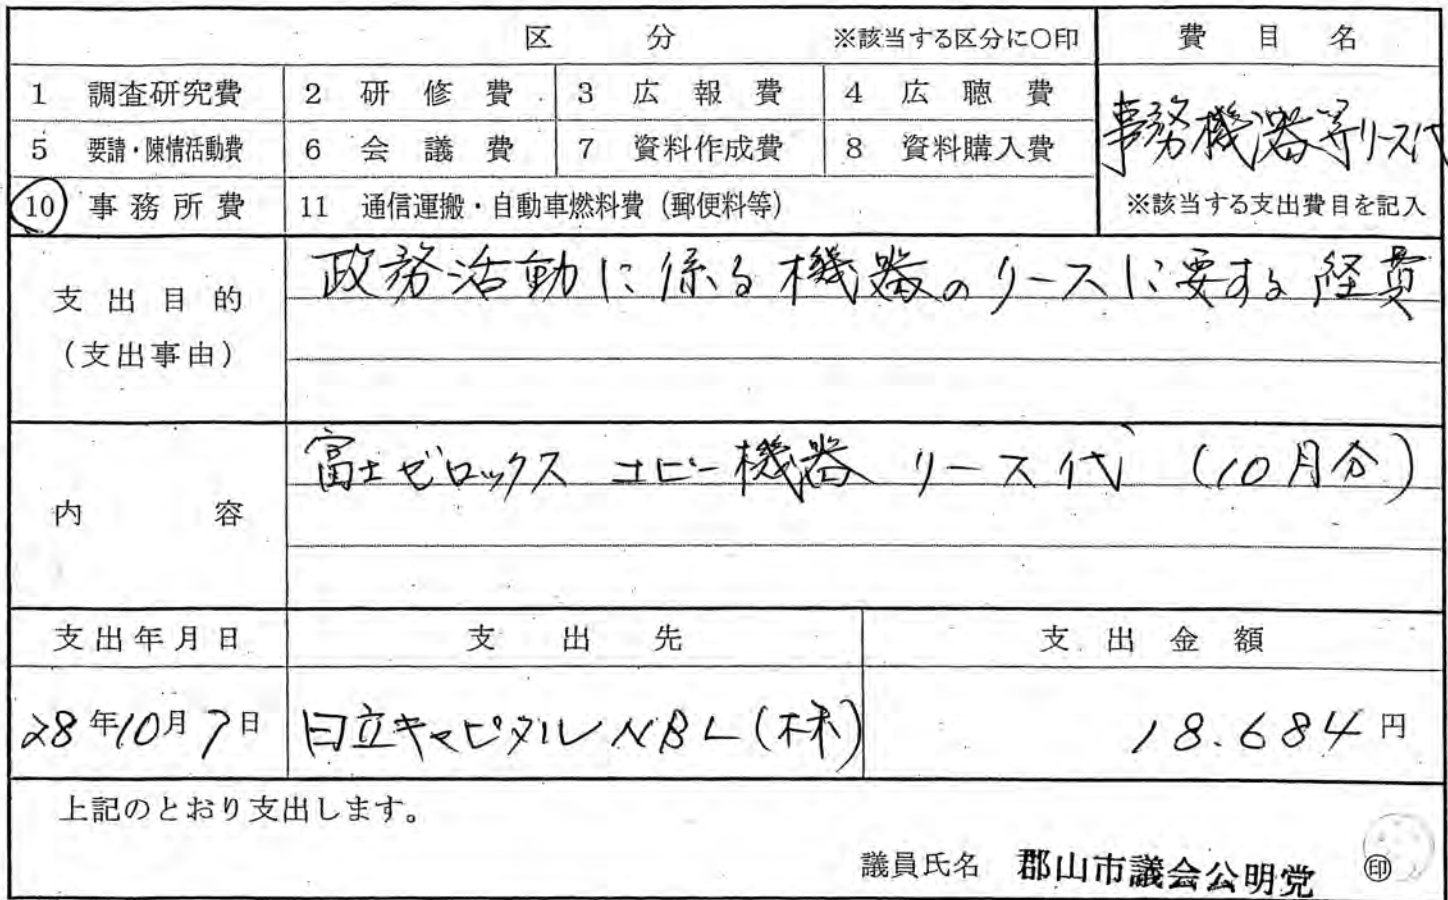 区 分 ※該当する区分に〇印 費 目 名
1 調査研究費 2 研 修 費 3 広 報 費 4 広 聴 費
事務機器等リース代
5 要請・陳情活動費 6 会 議 費 7 資料作成費 8 資料購入費
10 事務所費 11 通信運搬・自動車燃料費(郵便料等) ※該当する支出費目を記入
支出目的
(支出事由)
政務活動に係る機器のリースに要する経費
内 容
富士ゼロックス コピー機器 リース代 (10月分)
支出年月日 支 出 先 支 出 金 額
28年10月7日 日立キャピタルNBL(株) 18.684円
上記のとおり支出します。
議員氏名 郡山市議会公明党 ㊞